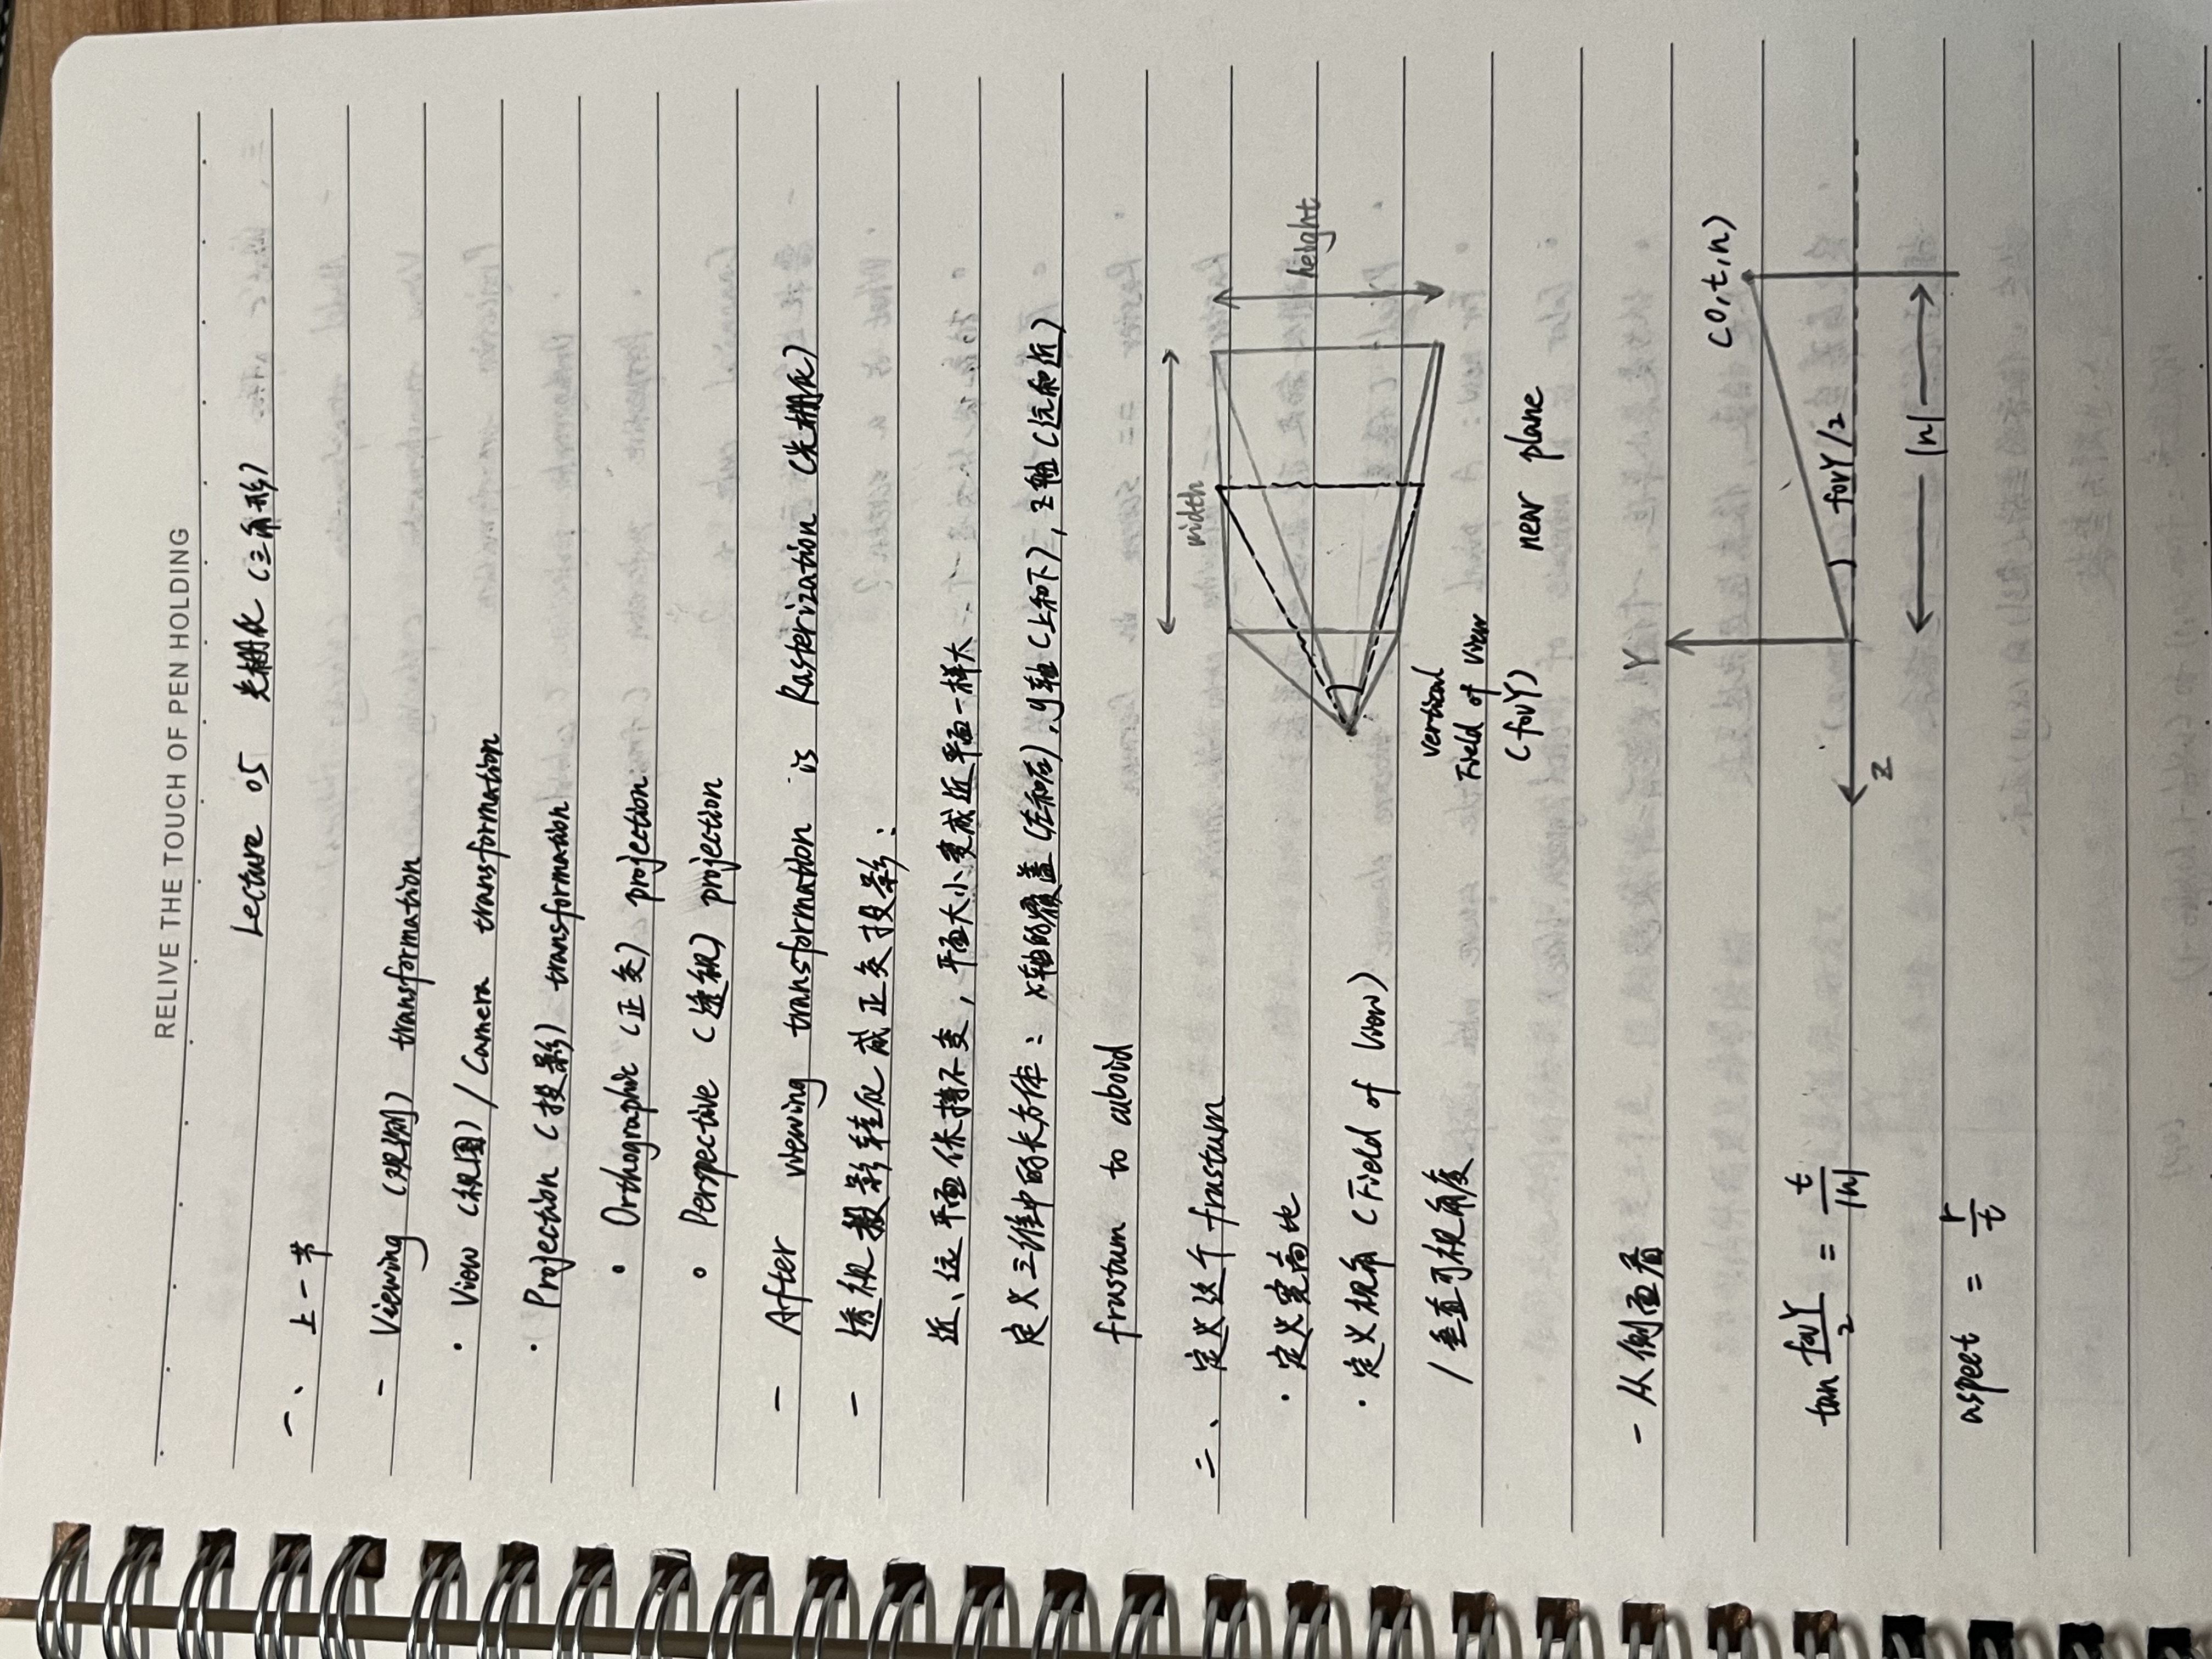 RELIVE THE TOUCH OF PEN HOLDING
Lecture 05 光栅化 (三角形)
一、上一节
- Viewing (观测) transformation
· View (视图) / Camera transformation
· Projection (投影) transformation
• Orthographic (正交) projection
• Perspective (透视) projection
- After viewing transformation is Rasterization (光栅化)
- 透视投影转化成正交投影:
近、远平面保持不变, 平面大小变成近平面一样大
定义三维中的长方体: x轴的覆盖 (左和右), y轴 (上和下), z轴 (远和近)
frustum to cuboid
二、定义这个 frustum
· 定义宽高比
· 定义视角 (Field of View)
/ 垂直可视角度
width
height
vertical
Field of View
(fovY)
near plane
- 从侧面看
Y
(0,t,n)
fovY/2
z
|n|
tan fovY/2 = t/|n|
aspect = r/t